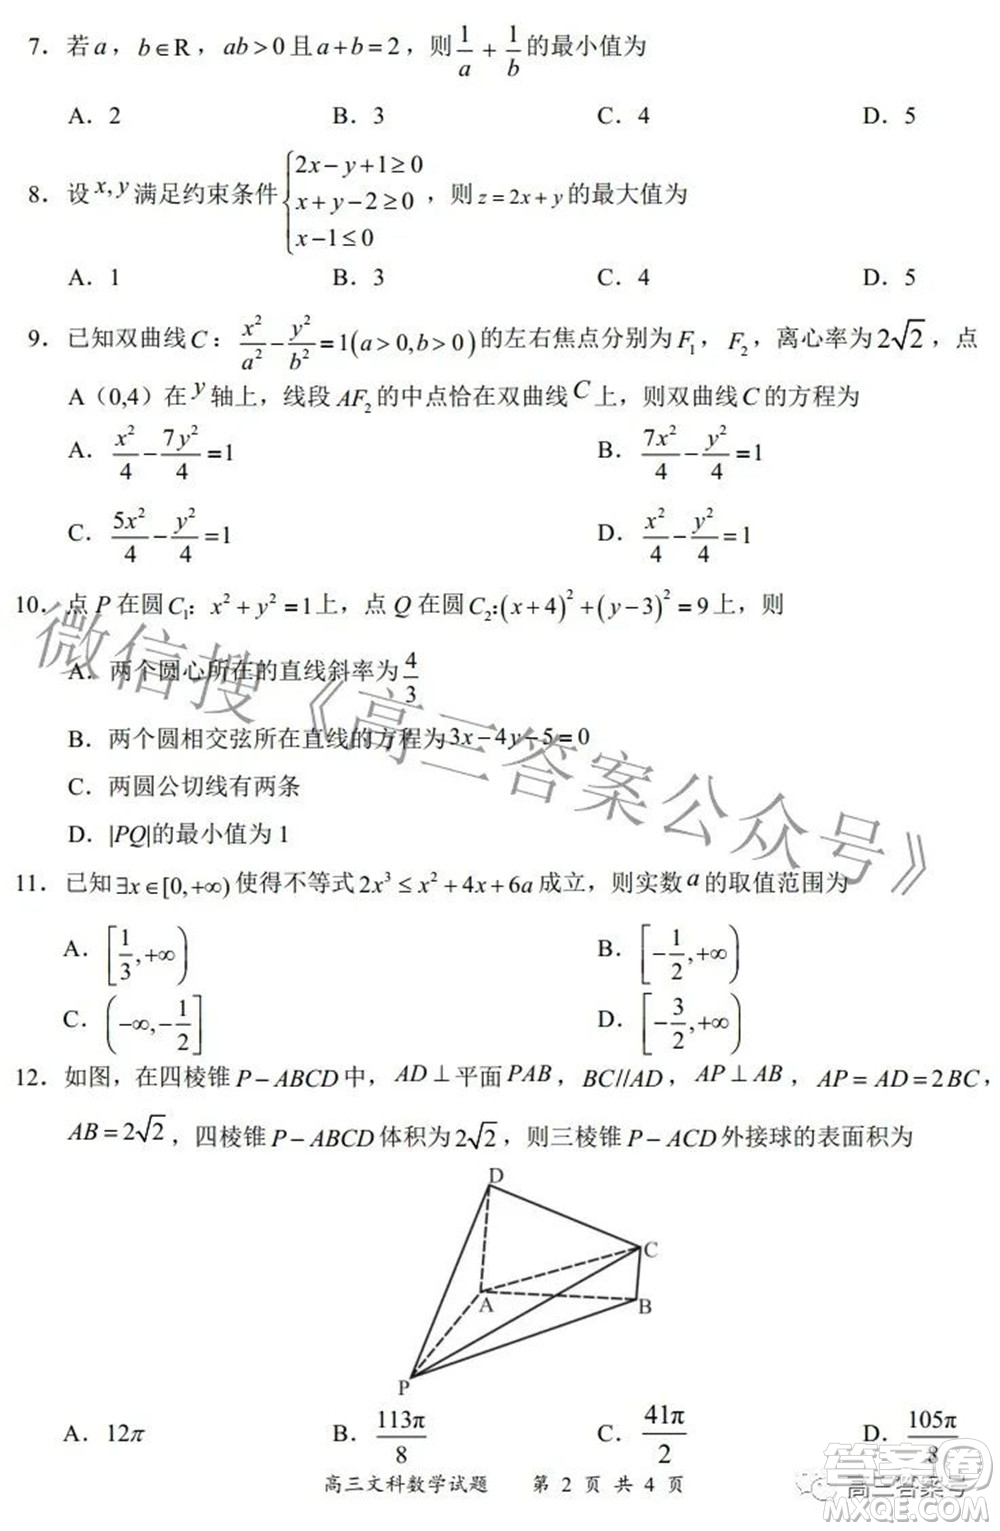 7．若 a，b∈R，ab>0 且 a+b=2，则 1/a + 1/b 的最小值为
A．2 B．3 C．4 D．5
8．设 x,y 满足约束条件 {2x−y+1≥0, x+y−2≥0, x−1≤0，则 z=2x+y 的最大值为
A．1 B．3 C．4 D．5
9．已知双曲线 C：x²/a² − y²/b² =1(a>0,b>0) 的左右焦点分别为 F₁，F₂，离心率为 2√2，点
A（0,4）在 y 轴上，线段 AF₂ 的中点恰在双曲线 C 上，则双曲线 C 的方程为
A．x²/4 − 7y²/4 =1 B．7x²/4 − y²/4 =1
C．5x²/4 − y²/4 =1 D．x²/4 − y²/4 =1
10．点 P 在圆 C₁：x²+y²=1 上，点 Q 在圆 C₂:(x+4)²+(y−3)²=9 上，则
A．两个圆心所在的直线斜率为 4/3
B．两个圆相交弦所在直线的方程为 3x−4y−5=0
C．两圆公切线有两条
D．|PQ|的最小值为 1
11．已知 ∃x∈[0,+∞) 使得不等式 2x³≤x²+4x+6a 成立，则实数 a 的取值范围为
A．[1/3,+∞) B．[−1/2,+∞)
C．(−∞,−1/2] D．[−3/2,+∞)
12．如图，在四棱锥 P−ABCD 中，AD⊥平面 PAB，BC//AD，AP⊥AB，AP=AD=2BC，
AB=2√2，四棱锥 P−ABCD 体积为 2√2，则三棱锥 P−ACD 外接球的表面积为
D
C
A
B
P
A．12π B．113π/8 C．41π/2 D．105π/8
高三文科数学试题 第 2 页 共 4 页
微信搜《高三答案公众号》
高三答案号
答案圈
MXQE.COM